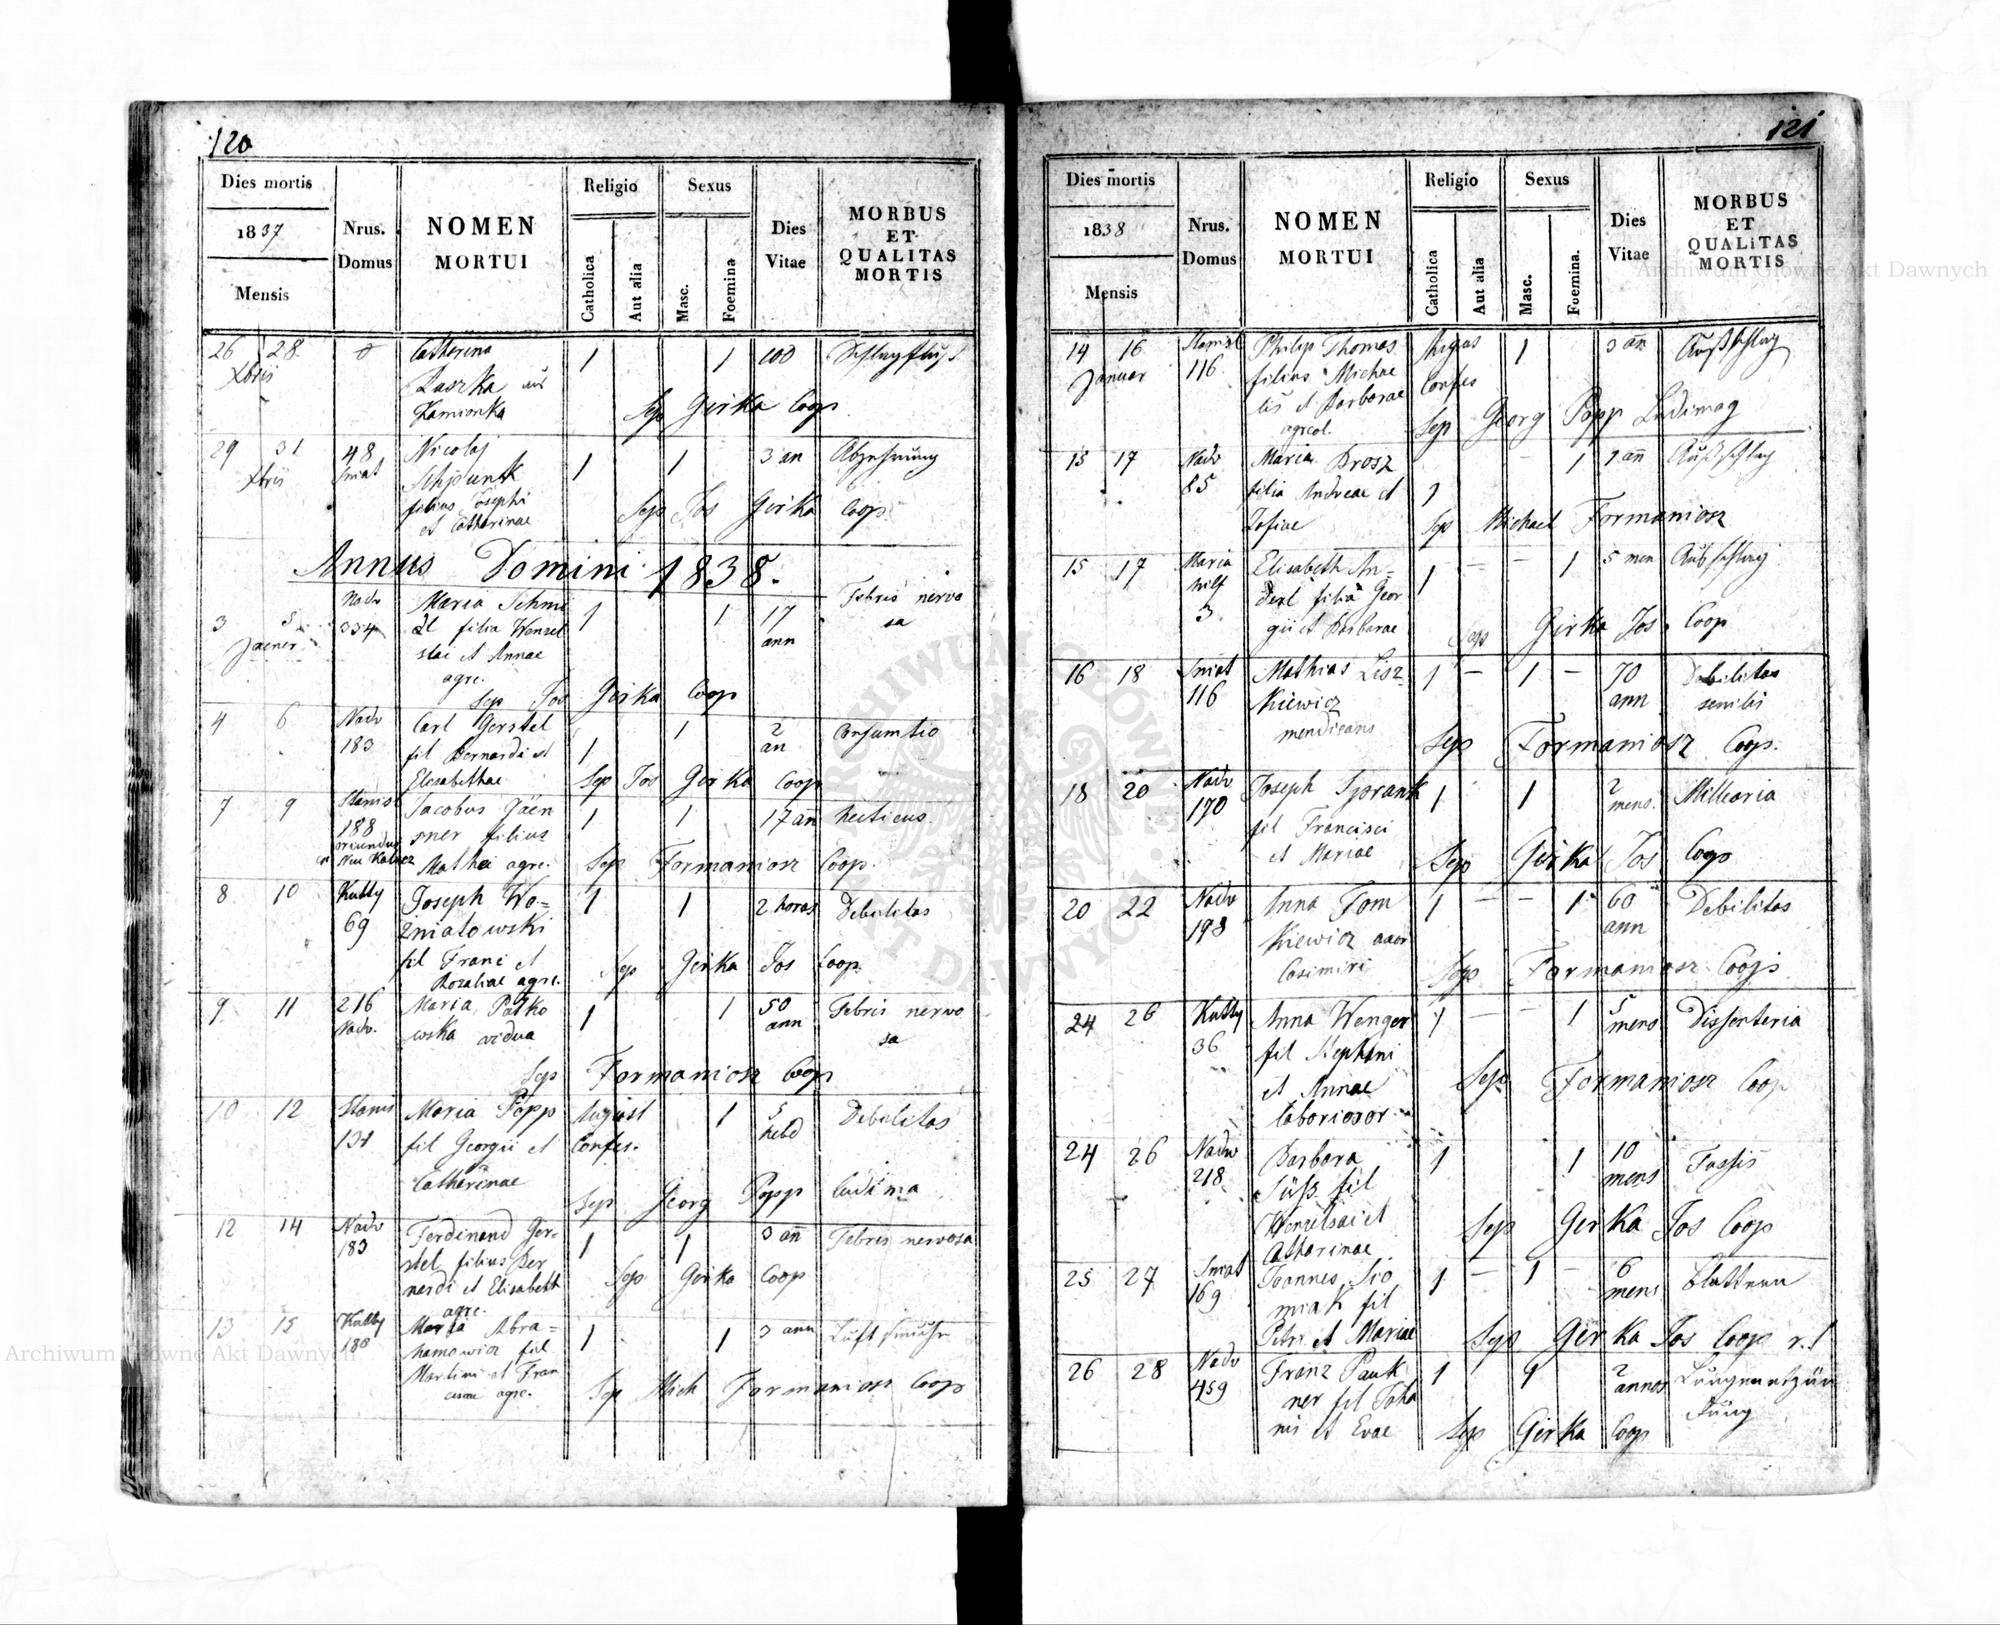 120
Dies mortis
1837
Mensis
Nrus.
Domus
NOMEN
MORTUI
Religio
Catholica
Aut alia
Sexus
Masc.
Foemina
Dies
Vitae
MORBUS
ET
QUALITAS
MORTIS
26 28 0 Catharina 1 1 100 Schlagfluß
Xbris
Kamionka
Sep Girka Coop
29 31 48 Nicolaj 1 1 3 an Abzehrung
Xbris Sniat
filius Josephi
et Catharinae
Sep Jos Girka Coop
Annus Domini 1838.
3 5 Nadw Maria Schmi 1 1 17 Febris nervo
Jaener 334 dl filia Wensel ann sa
slai et Annae
agre.
Sep Jos Girka Coop
4 6 Nadw Carl Gerstel 1 1 2 Consumtio
183 fil Bernardi et an
Elisabethae Sep Jos Girka Coop
7 9 Stanisl Jacobus Gäen 1 1 17 an hecticus
188 sner filius
oriundus
Mathei agre. Sep Formaniosz Coop.
8 10 Kutty Joseph Wo= 1 1 2 horas Debilitas
69 zniatowski
fil Franc et
Rozaliae agre. Sep Girka Jos Coop.
9 11 216 Maria Patko 1 1 50 Febris nervo
Nadw. wska vidua ann sa
Sep Formaniosz Coop
10 12 Stanis Maria Popp August 1 5 Debilitas
131 fil Georgii et Confes. hebd
Catharinae
Sep Georg Popp Ludima
12 14 Nadw Ferdinand Ger= 1 1 3 an Febris nervosa
183 stel filius Ber
nardi et Elisabeth
agre.
Sep Girka Coop
13 15 Kutty Maria Abra= 1 1 3 ann
180 hamowicz fil
Martini et Fran
agre.
Sep Mich Formaniosz Coop
121
Dies mortis
1838
Mensis
Nrus.
Domus
NOMEN
MORTUI
Religio
Catholica
Aut alia
Sexus
Masc.
Foemina.
Dies
Vitae
MORBUS
ET
QUALITAS
MORTIS
14 16 Stanisl Philip Thomas 1 3 an Außschlag
Januar 116 filius Michae Confes
lis et Barbarae
agricol.
Sep Georg Popp Ludimag
15 17 Nadw Maria Brosz 1 1 1 an Außschlag
85 filia Andreae et
Zofiae
Sep Michael Formaniosz
15 17 Maria Elisabeth An= 1 — — 1 5 men Außschlag
hilf derl filia Geor
3 gii et Barbarae
Sep Girka Jos. Coop
16 18 Sniat Mathias Lisz= 1 — 1 — 70 Debilitas
116 kiewicz ann senilis
mendicans
Sep Formaniosz Coop.
18 20 Nadw Joseph 1 1 2 Millearia
170 fil Francisci mens.
et Mariae
Sep Girka Jos Coop
20 22 Nadw Anna Tom 1 — — 1 60 Debilitas
193 kiewicz uxor ann
Casimiri
Sep Formaniosz Coop
24 26 Kutty Anna Wenger 1 — — 1 5 Dissenteria
36 fil Stephani mens
et Annae
laboriosor
Sep Formaniosz Coop
24 26 Nadw Barbara 1 1 10 Tussis
218 Süß fil mens
Wenzelsai et
Catharinae
Sep Girka Jos Coop
25 27 Sniat Joannes Sio 1 — 1 — 6 Blattern
169 miak fil mens
Petri et Mariae
Sep Girka Jos Coop r.l
26 28 Nadw Franz Pauk 1 1 2 Lungenentzün
459 ner fil Joha annos dung
nis et Evae
Sep Girka Coop
Archiwum Główne Akt Dawnych
Archiwum Główne Akt Dawnych
ARCHIWUM GŁÓWNE AKT DAWNYCH